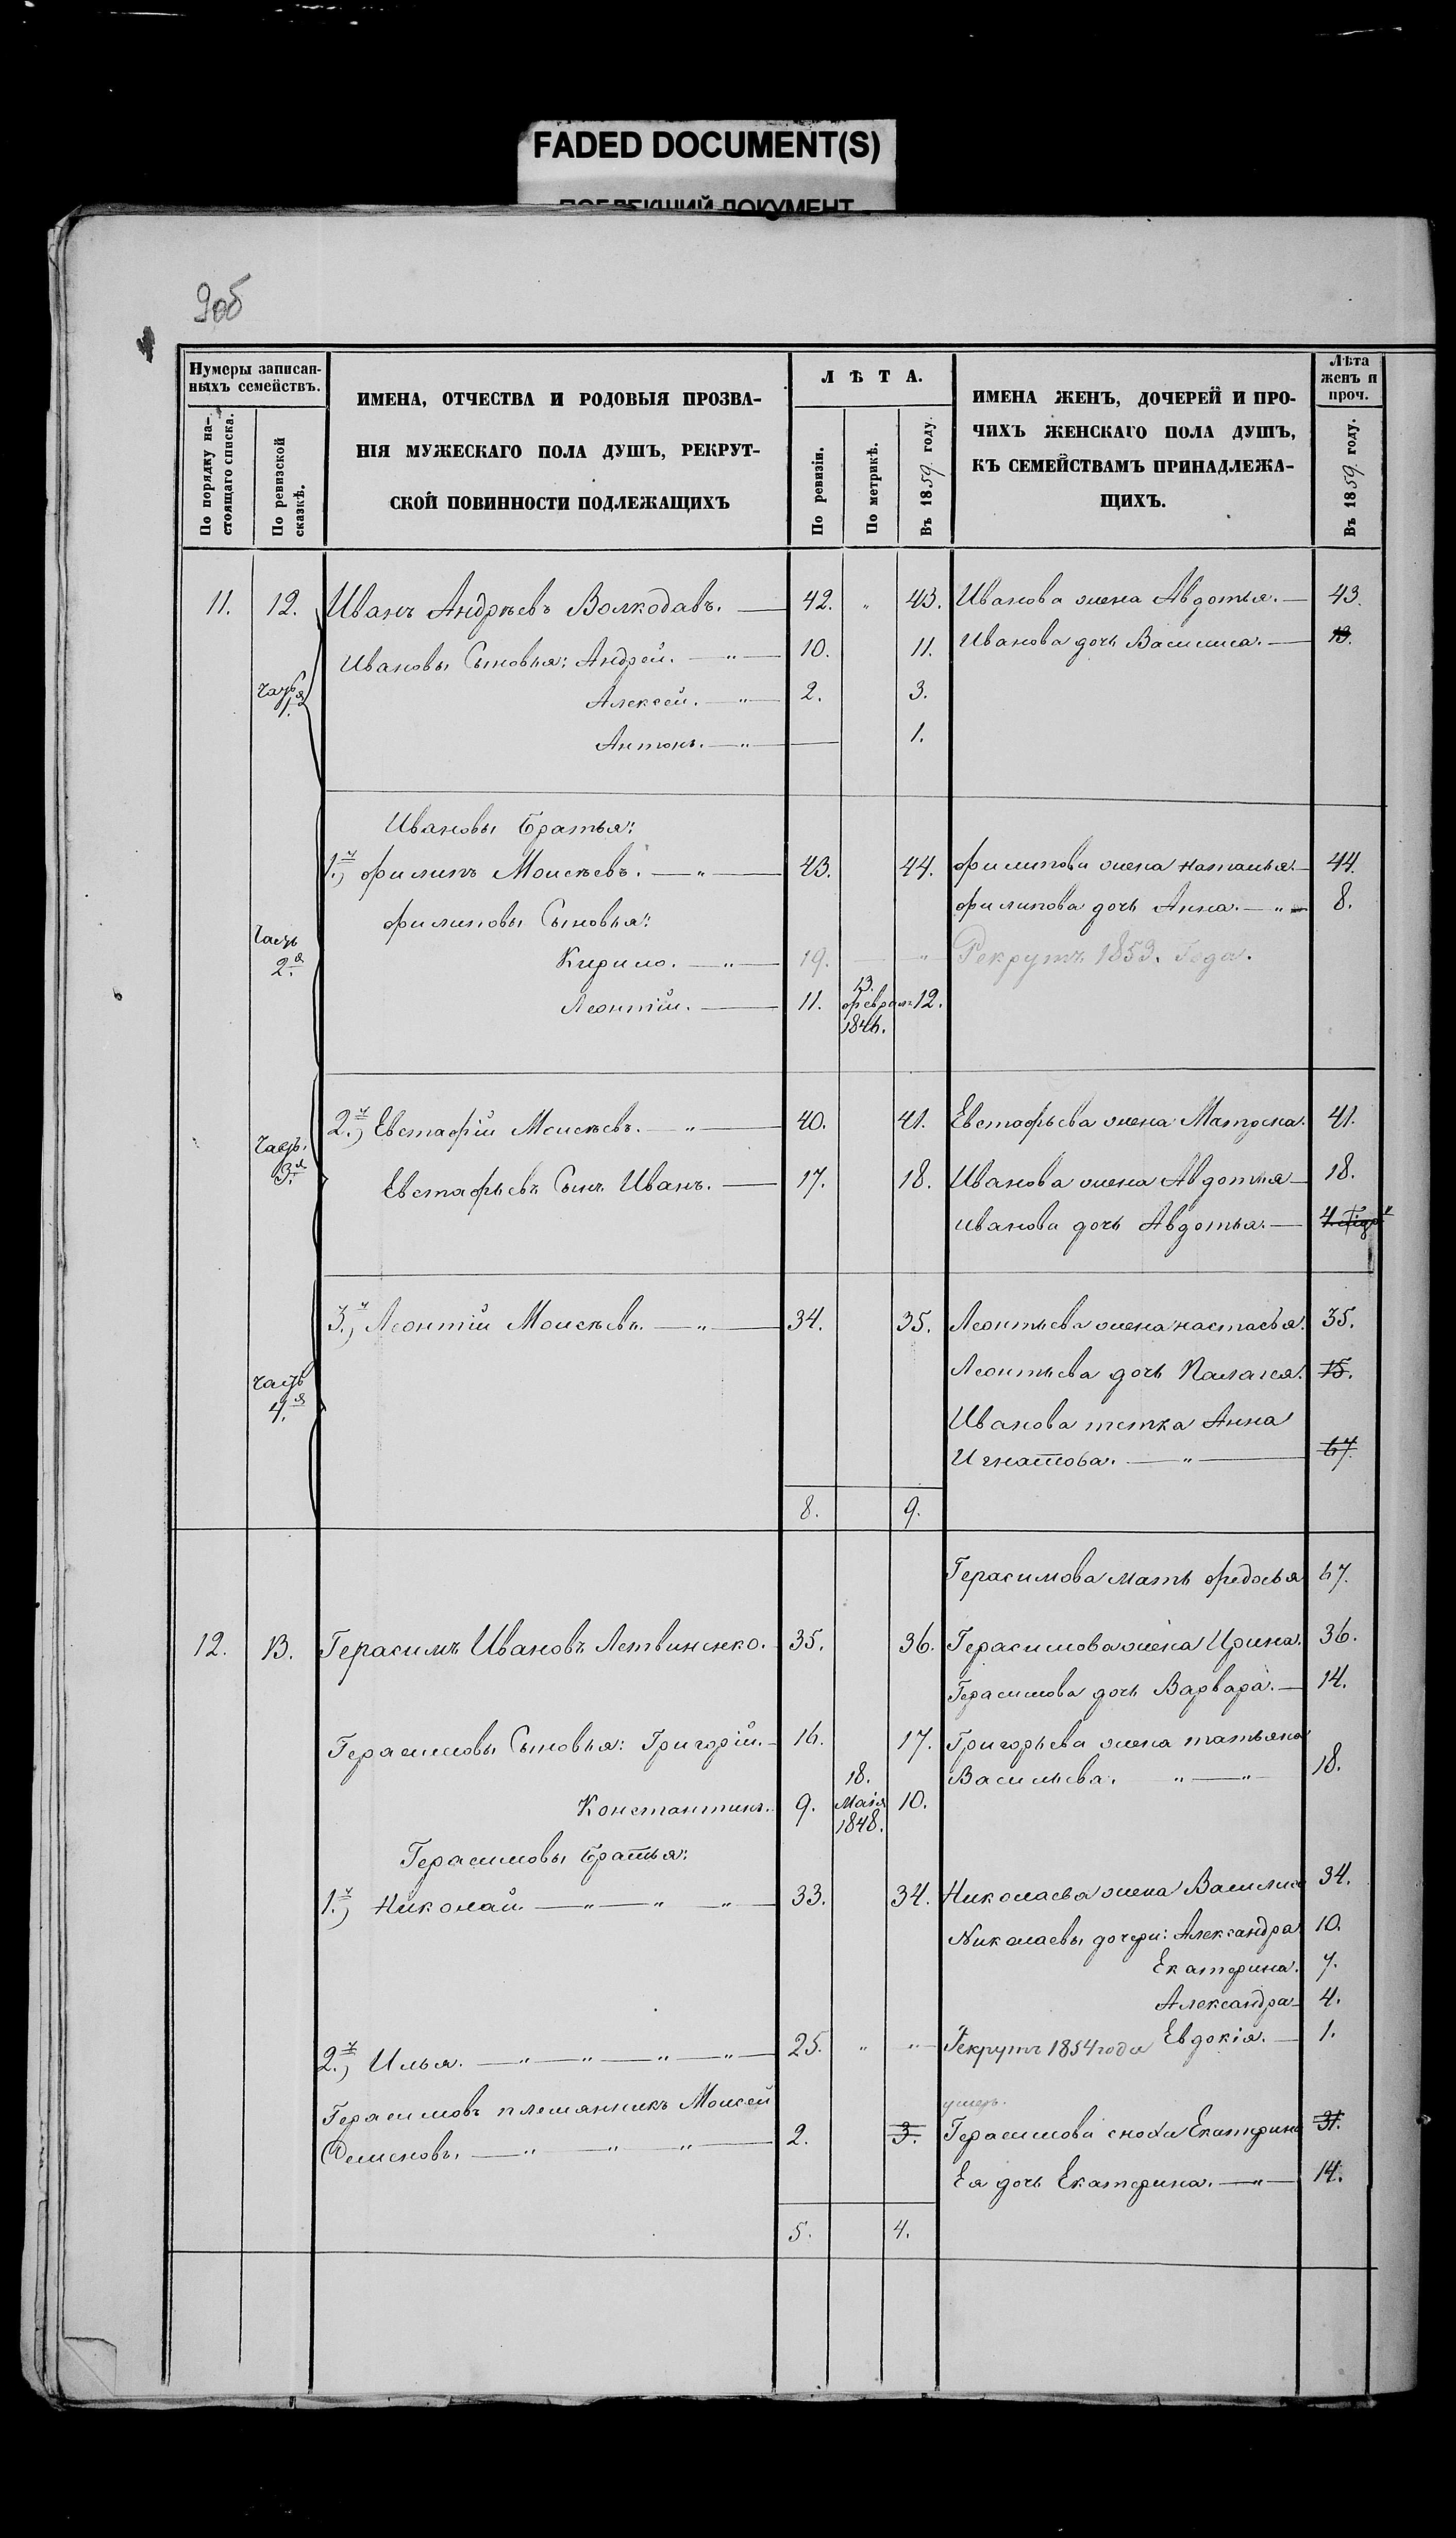 FADED DOCUMENT(S)
ПОБЛЕКШИЙ ДОКУМЕНТ
9об
Нумеры записан-
ныхъ семействъ.
По порядку на-
стоящаго списка.
По ревизской
сказкѣ.
ИМЕНА, ОТЧЕСТВА И РОДОВЫЯ ПРОЗВА-
НІЯ МУЖЕСКАГО ПОЛА ДУШЪ, РЕКРУТ-
СКОЙ ПОВИННОСТИ ПОДЛЕЖАЩИХЪ
ЛѢТА.
По ревизіи.
По метрикѣ.
Въ 1859 году.
ИМЕНА ЖЕНЪ, ДОЧЕРЕЙ И ПРО-
ЧИХЪ ЖЕНСКАГО ПОЛА ДУШЪ,
КЪ СЕМЕЙСТВАМЪ ПРИНАДЛЕЖА-
ЩИХЪ.
Лѣта
женъ и
проч.
Въ 1859 году.
11. 12. Иванъ Андрѣевъ Волкодавъ. — 42. „ 43. Иванова жена Авдотья. — 43.
Ивановы Сыновья: Андрей. — „ — 10. 11. Иванова дочь Василиса. — 13.
часть 1.я Алексей. — „ — 2. 3.
Антонъ. — „ — 1.
Ивановы Братья:
1.й) Филипъ Моисѣевъ. — „ — 43. 44. Филипова жена Наталья. — 44.
Филиповы Сыновья: Филипова дочь Анна. — „ — 8.
Часть 2.я Кирило. — „ — 19. — „ Рекрутъ 1853. Года.
Леонтій. — 11. 13. Феврал: 1846. 12.
2.й) Евстафій Моисѣевъ. — „ — 40. 41. Евстафьева жена Матрена. 41.
Часть. 3.я Евстафьевъ Сынъ Иванъ. — 17. 18. Иванова жена Авдотья — 18.
Иванова дочь Авдотья. — 4.
3.й) Леонтій Моисѣевъ. — „ — 34. 35. Леонтьева жена Настасья. 35.
часть 4.я Леонтьева дочь Палагея. 15.
Иванова тетка Анна
Игнатова. — „ — 67.
8. 9.
Герасимова мать Федосья 67.
12. 13. Герасимъ Ивановъ Летвиненко. 35. 36. Герасимова жена Ирина. 36.
Герасимова дочь Варвара. — 14.
Герасимовы Сыновья: Григорій. — 16. 17. Григорьева жена Татьяна
Васильева. „ — „ 18.
Константинъ. 9. 18. Маія 1848. 10.
Герасимовы Братья:
1.й) Николай. — „ — „ — „ — 33. 34. Николаева жена Василиса 34.
Николаевы дочери: Александра 10.
Екатерина. 7.
Александра — 4.
Евдокія. — 1.
2.й) Илья. — „ — „ — „ — „ — 25. „ „ Рекрутъ 1854 года
Герасимовъ племянникъ Моисей умеръ.
Семеновъ. — „ — „ — „ — 2. 3. Герасимова сноха Екатерина 31.
Ея дочь Екатерина. — „ — 14.
5. 4.